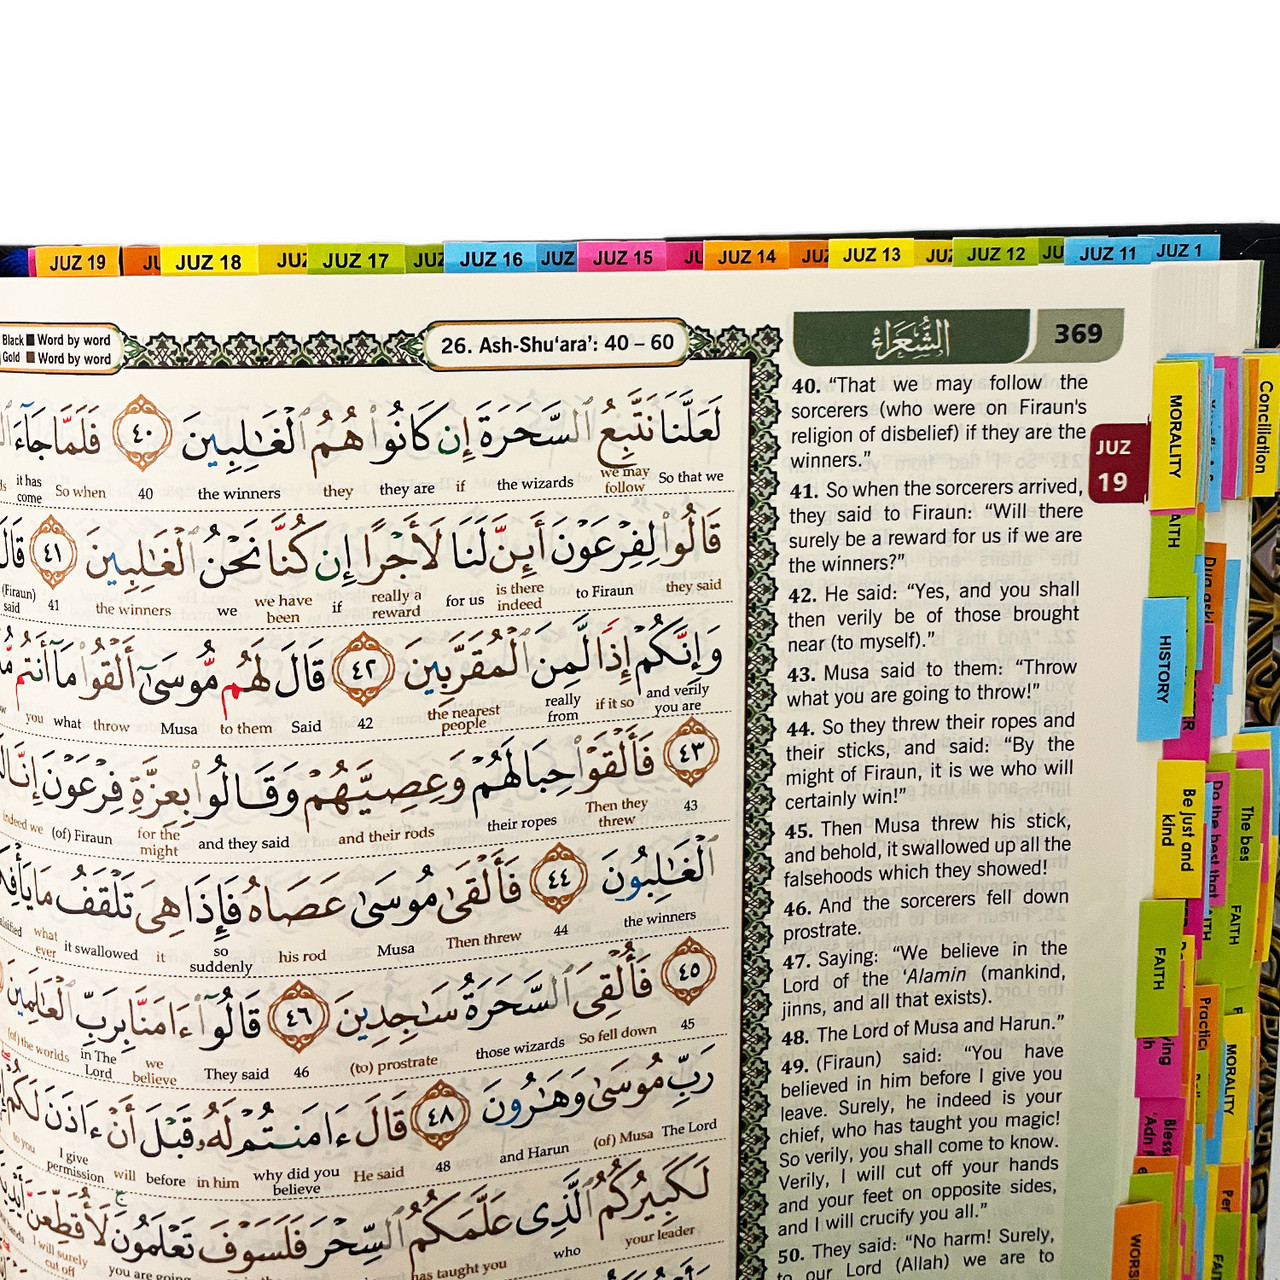 JUZ 19
JUZ 18
JUZ 17
JUZ 16
JUZ
JUZ 15
JUZ 14
JUZ 13
JUZ 12
JUZ 11
JUZ 1
Black Word by word
Gold Word by word
26. Ash-Shu‘ara’: 40 – 60
الشُّعَرَاءُ
369
لَعَلَّنَا نَتَّبِعُ ٱلسَّحَرَةَ إِن كَانُوا۟ هُمُ ٱلْغَـٰلِبِينَ ٤٠ فَلَمَّا جَآءَ
So that we we may follow the wizards if they are they the winners 40 So when it has come
قَالُوا۟ لِفِرْعَوْنَ أَئِنَّ لَنَا لَأَجْرًا إِن كُنَّا نَحْنُ ٱلْغَـٰلِبِينَ ٤١ قَالَ
they said to Firaun is there indeed for us really a reward if we have been we the winners 41 (Firaun) said
وَإِنَّكُمْ إِذًا لَّمِنَ ٱلْمُقَرَّبِينَ ٤٢ قَالَ لَهُم مُّوسَىٰٓ أَلْقُوا۟ مَآ أَنتُم
and verily you are if it so really from the nearest people 42 Said to them Musa throw what you
٤٣ فَأَلْقَوْا۟ حِبَالَهُمْ وَعِصِيَّهُمْ وَقَالُوا۟ بِعِزَّةِ فِرْعَوْنَ إِنَّا
43 Then they threw their ropes and their rods and they said for the might (of) Firaun indeed we
ٱلْغَـٰلِبُونَ ٤٤ فَأَلْقَىٰ مُوسَىٰ عَصَاهُ فَإِذَا هِىَ تَلْقَفُ مَا
the winners 44 Then threw Musa his rod so suddenly it it swallowed what ever
٤٥ فَأُلْقِىَ ٱلسَّحَرَةُ سَـٰجِدِينَ ٤٦ قَالُوٓا۟ ءَامَنَّا بِرَبِّ ٱلْعَـٰلَمِينَ
45 So fell down those wizards (to) prostrate 46 They said we believe in The Lord (of) the worlds
رَبِّ مُوسَىٰ وَهَـٰرُونَ ٤٨ قَالَ ءَامَنتُمْ لَهُۥ قَبْلَ أَنْ ءَاذَنَ لَكُمْ
The Lord (of) Musa and Harun 48 He said why did you believe in him before will I give permission to you
لَكَبِيرُكُمُ ٱلَّذِى عَلَّمَكُمُ ٱلسِّحْرَ فَلَسَوْفَ تَعْلَمُونَ لَأُقَطِّعَنَّ
your leader who has taught you you are going I will surely cut off
40. “That we may follow the
sorcerers (who were on Firaun's
religion of disbelief) if they are the
winners.”
41. So when the sorcerers arrived,
they said to Firaun: “Will there
surely be a reward for us if we are
the winners?”
42. He said: “Yes, and you shall
then verily be of those brought
near (to myself).”
43. Musa said to them: “Throw
what you are going to throw!”
44. So they threw their ropes and
their sticks, and said: “By the
might of Firaun, it is we who will
certainly win!”
45. Then Musa threw his stick,
and behold, it swallowed up all the
falsehoods which they showed!
46. And the sorcerers fell down
prostrate.
47. Saying: “We believe in the
Lord of the ‘Alamin (mankind,
jinns, and all that exists).
48. The Lord of Musa and Harun.”
49. (Firaun) said: “You have
believed in him before I give you
leave. Surely, he indeed is your
chief, who has taught you magic!
So verily, you shall come to know.
Verily, I will cut off your hands
and your feet on opposite sides,
and I will crucify you all.”
50. They said: “No harm! Surely,
to our Lord (Allah) we are to
JUZ
19
MORALITY
Conciliation
HISTORY
Be just and
kind
Do the best that
The bes
FAITH
FAITH
MORALITY